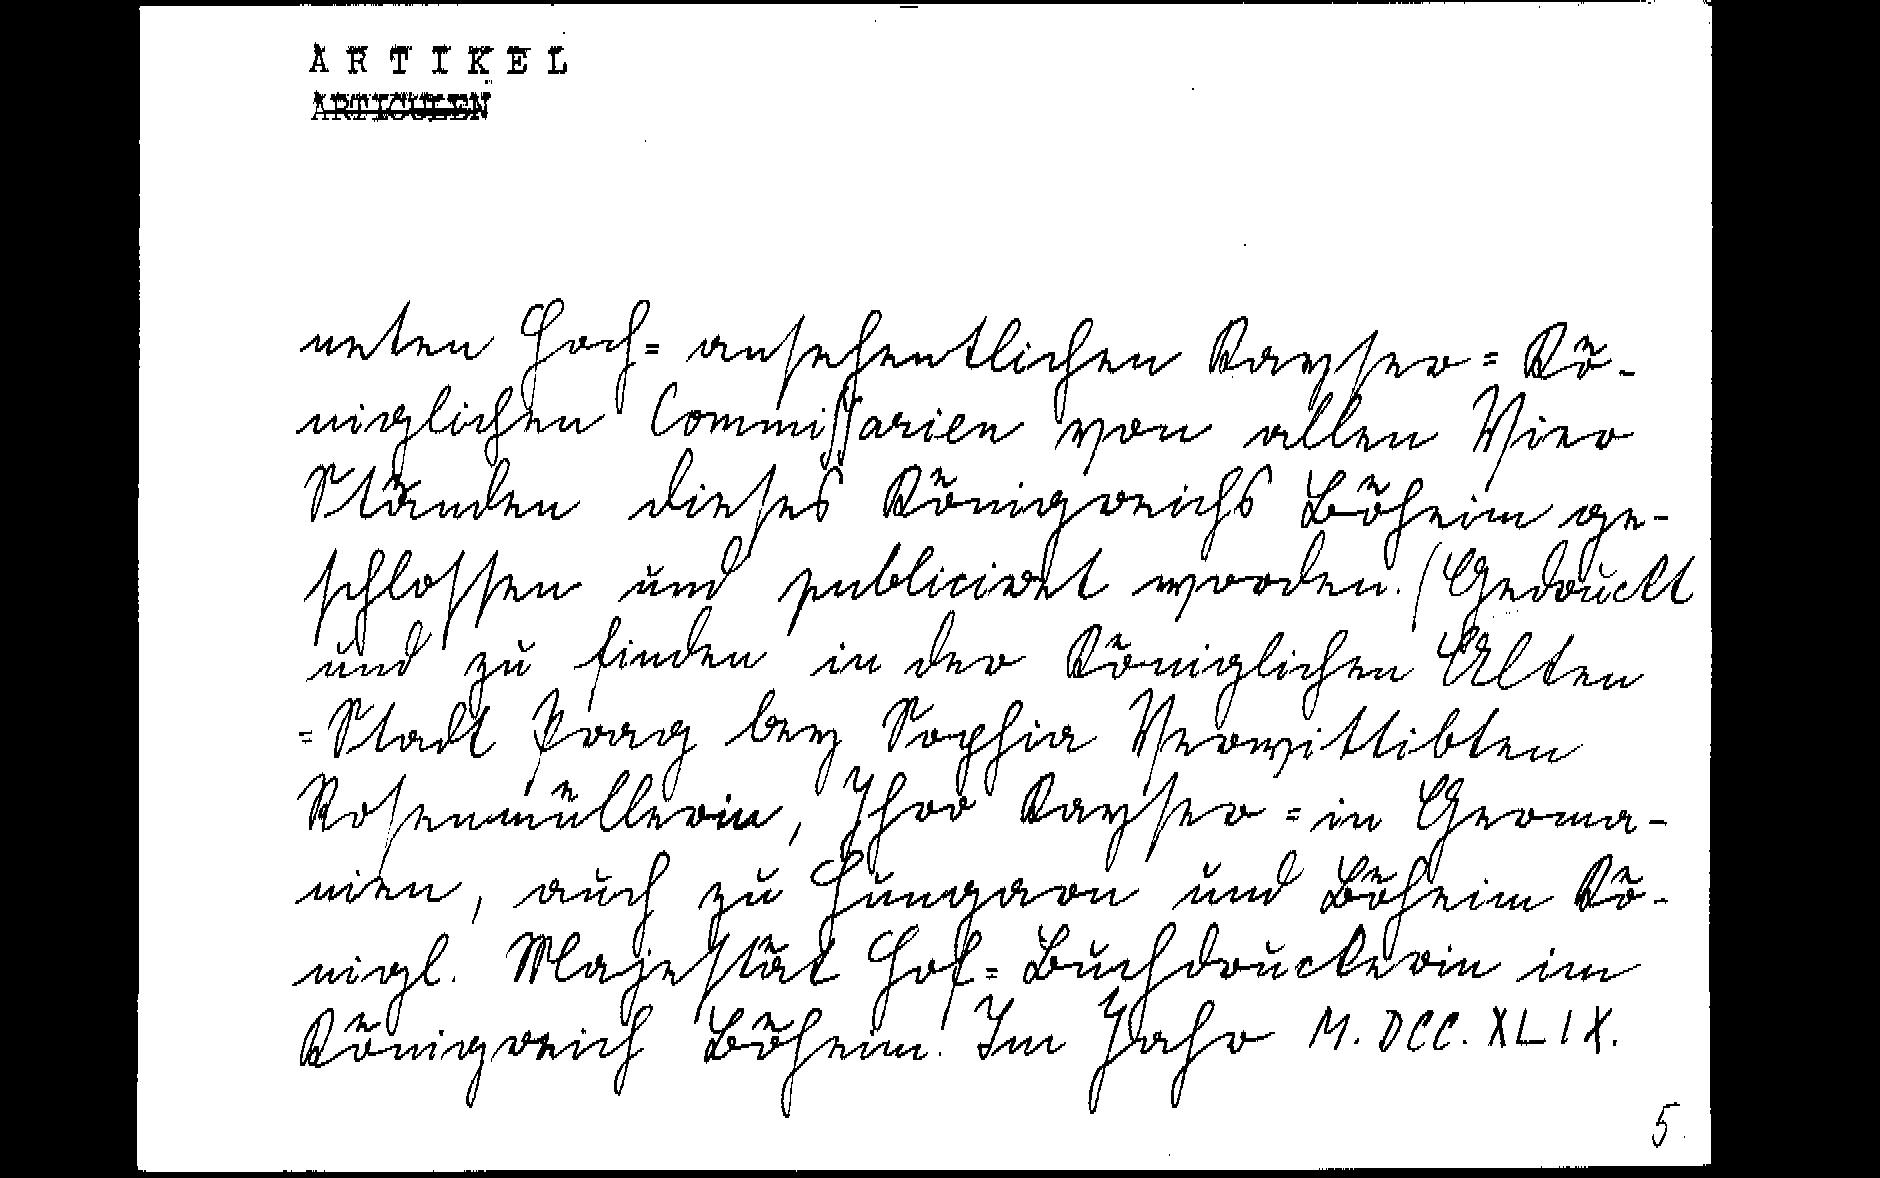 ARTIKEL
ARTICULEN
neten Hoch= ansehentlichen Kayser=Kö-
niglichen Commissarien von allen Vier
Ständen dieses Königreichs Böheim ge-
schlossen und publiciret worden. (Gedruckt
und zu finden in der Königlichen Alten
=Stadt Prag bey Sophia Verwittibten
Rosenmüllerin, Ihro Kayser=in Germa-
nien, auch zu Hungarn und Böheim Kö-
nigl. Majestät Hof=Buchdruckerin im
Königreich Böheim. Im Jahr M.DCC.XLIX.
5